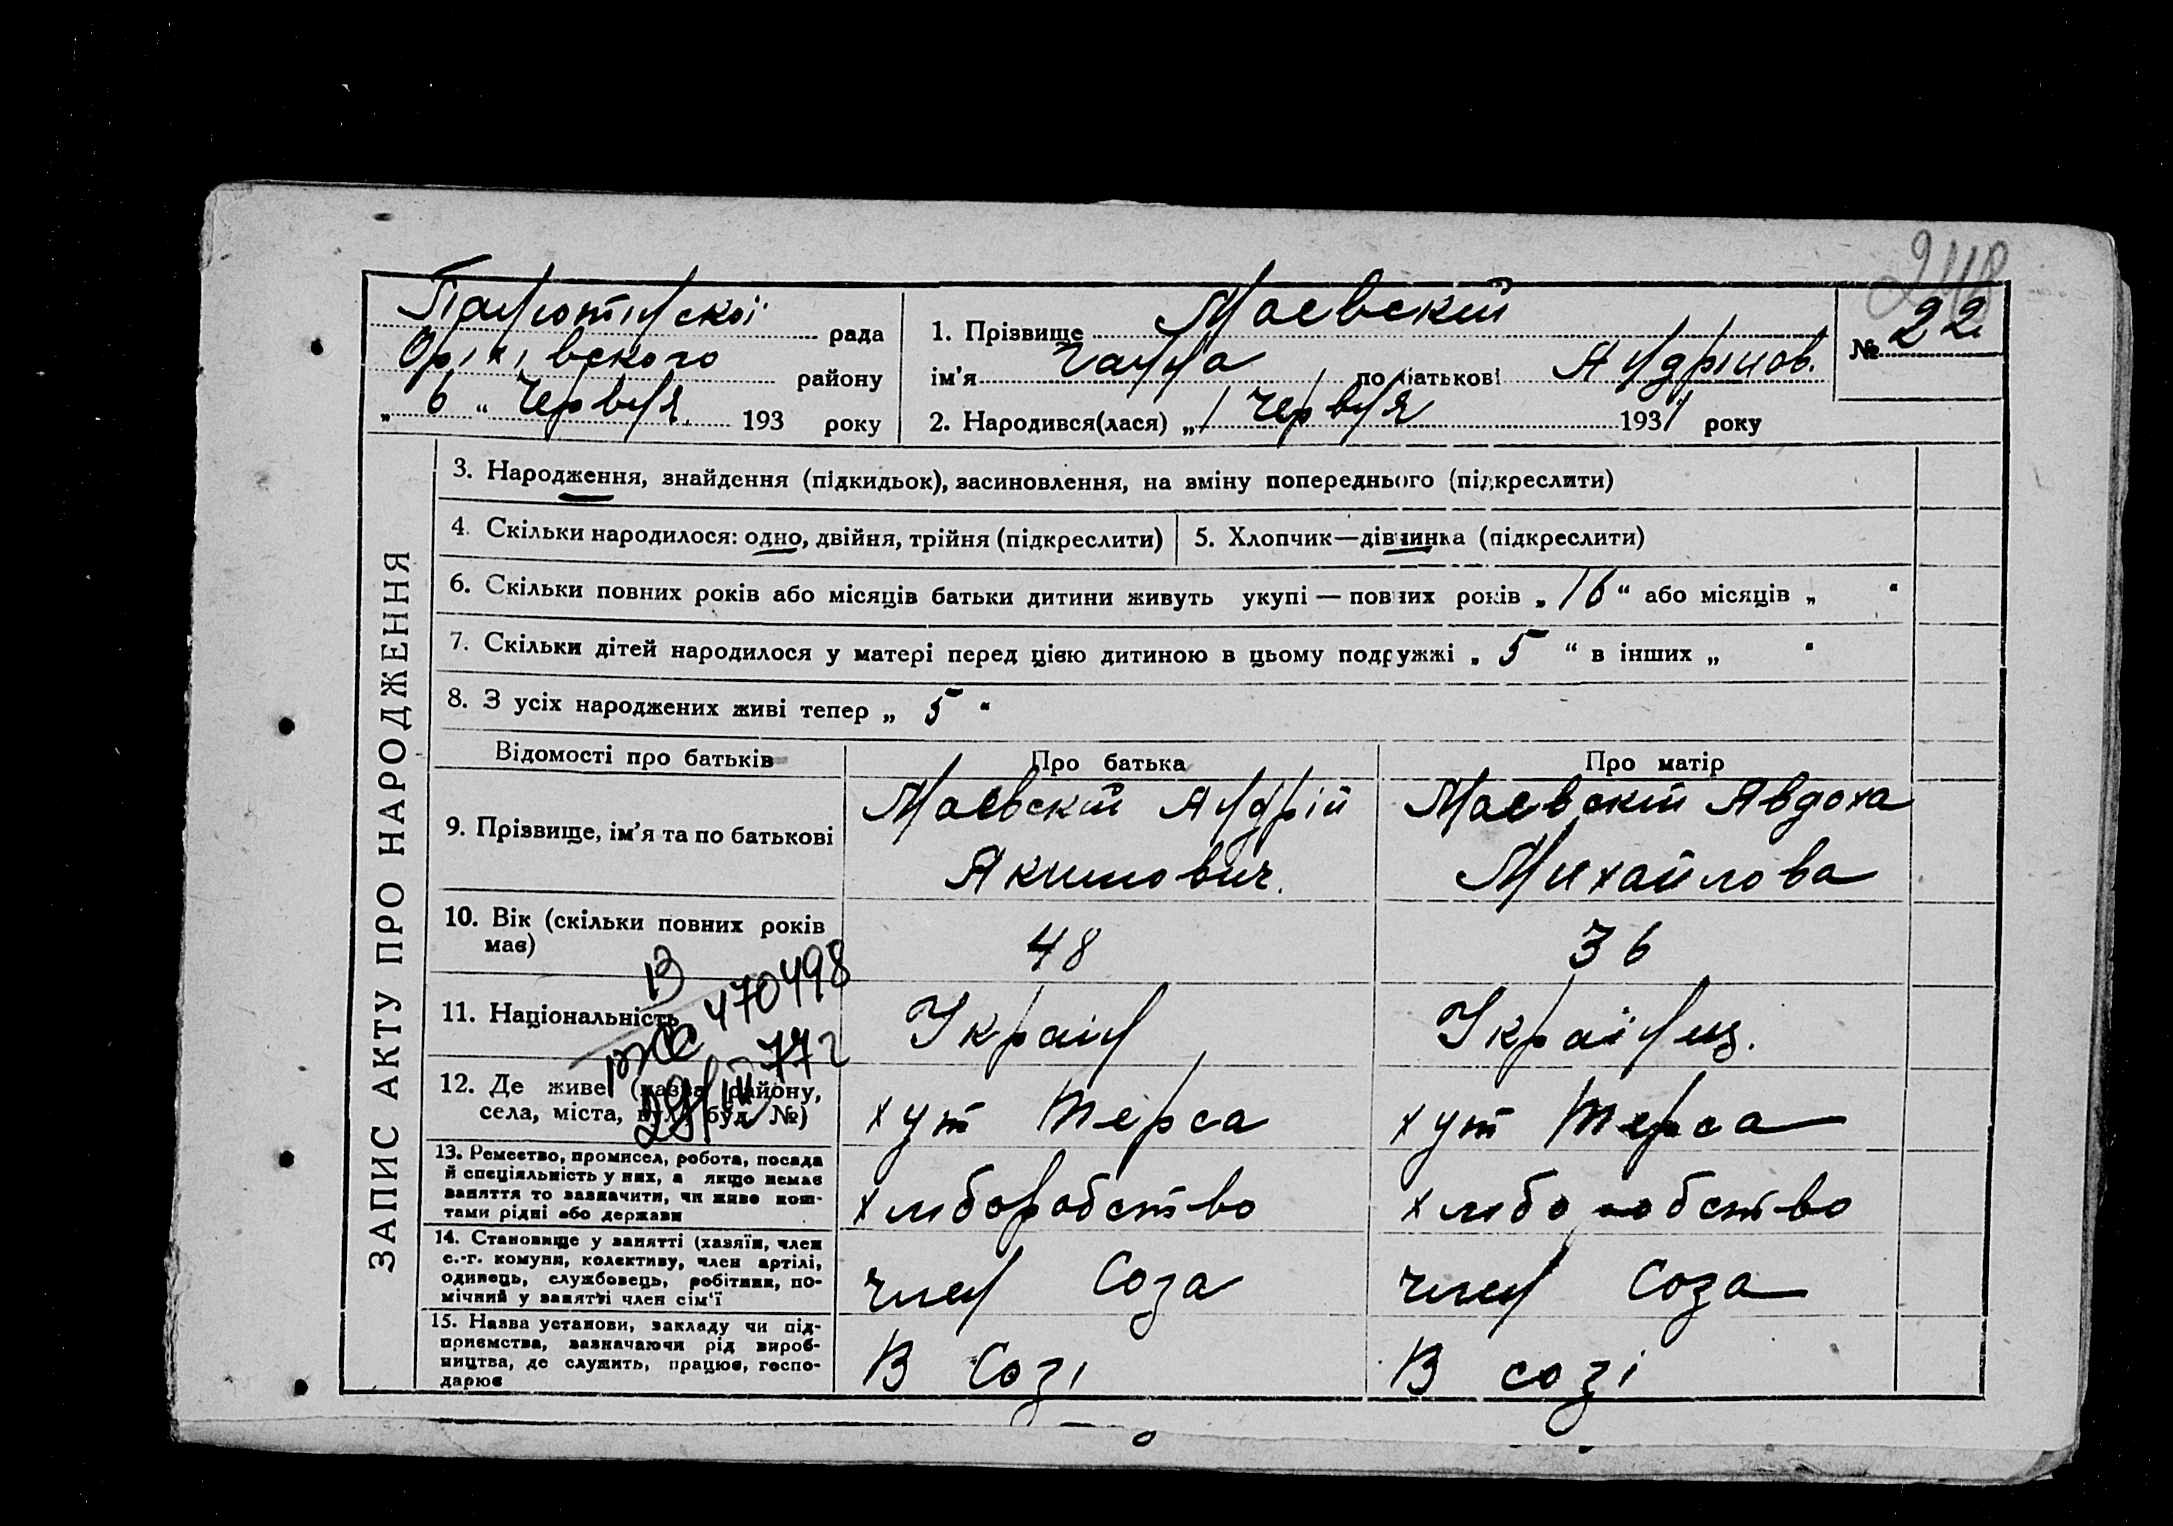 248
Панютинської рада
Оріхівского району
„ 6 “ Червня 193 року
1. Прізвище Маевский
ім'я Ганна по батькові Андріиов.
2. Народився(лася) „ 1 Червня 1931 року
№ 22
ЗАПИС АКТУ ПРО НАРОДЖЕННЯ
3. Народження, знайдення (підкидьок), засиновлення, на зміну попереднього (підкреслити)
4. Скільки народилося: одно, двійня, трійня (підкреслити)
5. Хлопчик—дівчинка (підкреслити)
6. Скільки повних років або місяців батьки дитини живуть укупі — повних років „ 16 “ або місяців „ “
7. Скільки дітей народилося у матері перед цією дитиною в цьому подружжі „ 5 “ в інших „ “
8. З усіх народжених живі тепер „ 5 “
Відомості про батьків Про батька Про матір
9. Прізвище, ім'я та по батькові
Маевский Андрій
Якимович.
Маевский Явдоха
Михайлова
10. Вік (скільки повних років
має)
48
36
11. Національність
Україн
Українц.
470498
77 г
12. Де живе (назва району,
села, міста, вул. буд. №)
хут Терса
хут Терса
13. Ремество, промисел, робота, посада
й спеціяльність у них, а якщо немає
заняття то зазначити, чи живе кош-
тами рідні або держави
хліборобство
хліборобство
14. Становище у занятті (хазяїн, член
с.-г. комуни, колективу, член артілі,
одинець, службовець, робітник, по-
мічний у занятті член сім'ї
член Соза
член Соза
15. Назва установи, закладу чи під-
приємства, зазначаючи рід вироб-
ництва, де служить, працює, госпо-
дарює
В Созі
В созі